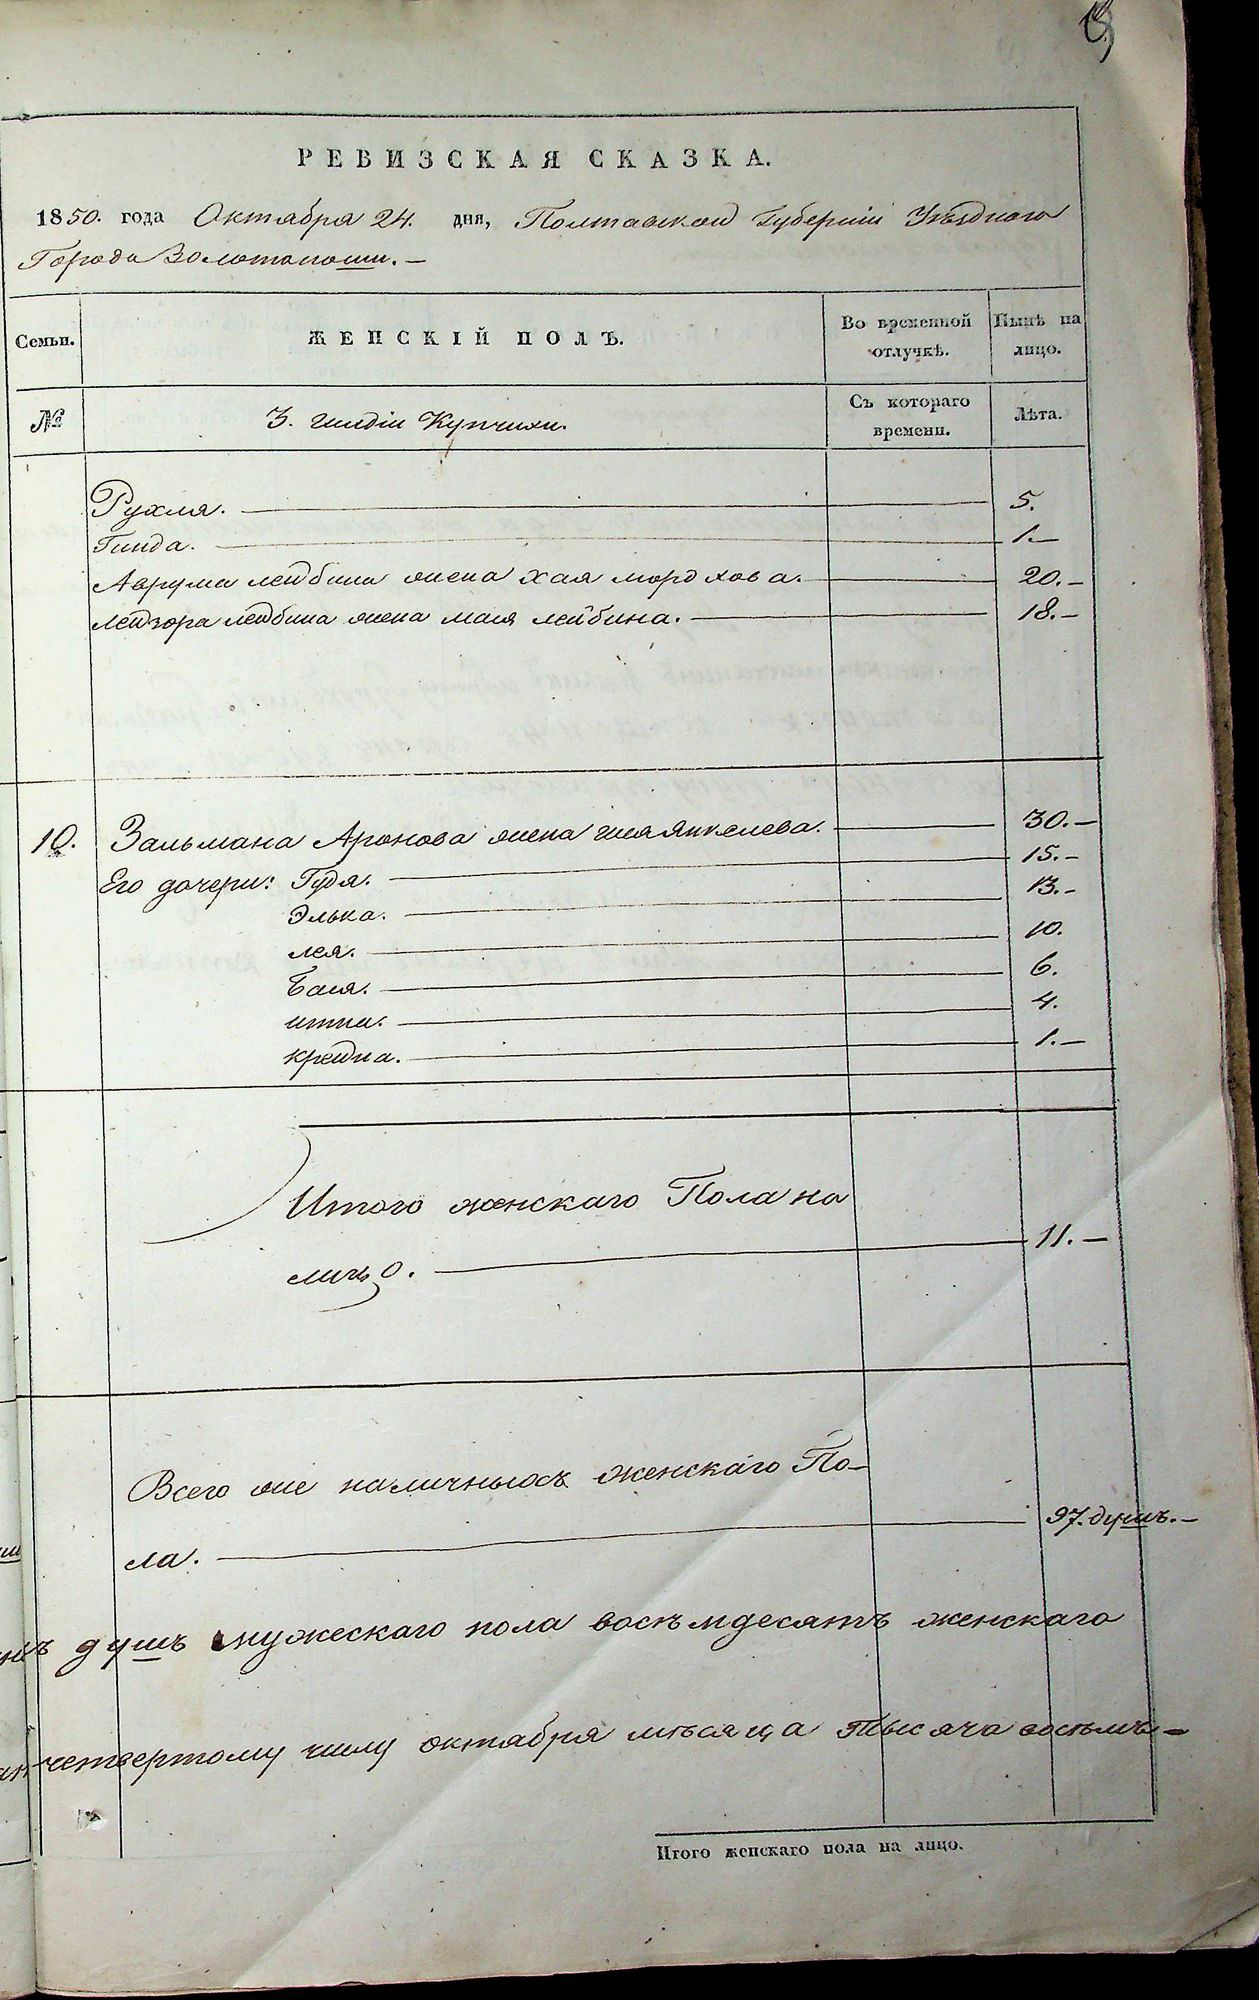 РЕВИЗСКАЯ СКАЗКА.
1850. года Октября 24. дня, Полтавской Губерніи Уѣзднаго
Города Золотоноши. —
Семьи.
ЖЕНСКІЙ ПОЛЪ.
Во временной отлучкѣ.
Нынѣ на лицо.
№
3. гильдіи Купчихи.
Съ котораго времени.
Лѣта.
Рухля. — 5.
Гинда. — 1. —
Аврума лейбина жена хая мордхова. — 20. —
лейзора лейбина жена мася лейбина. — 18. —
10. Зальмана Аронова жена Янкелева. — 30. —
Его дочери: Гудя. — 15. —
Элька. — 13. —
лея. — 10.
Бася. — 6.
итта. — 4.
крейна. — 1. —
Итого женскаго Пола на
лицо. — 11. —
Всего же наличныхъ женскаго По-
ла. — 97. душъ. —
душъ мужескаго пола восемдесятъ женскаго
четвертому числу октября мѣсяца тысяча
Итого женскаго пола на лицо.